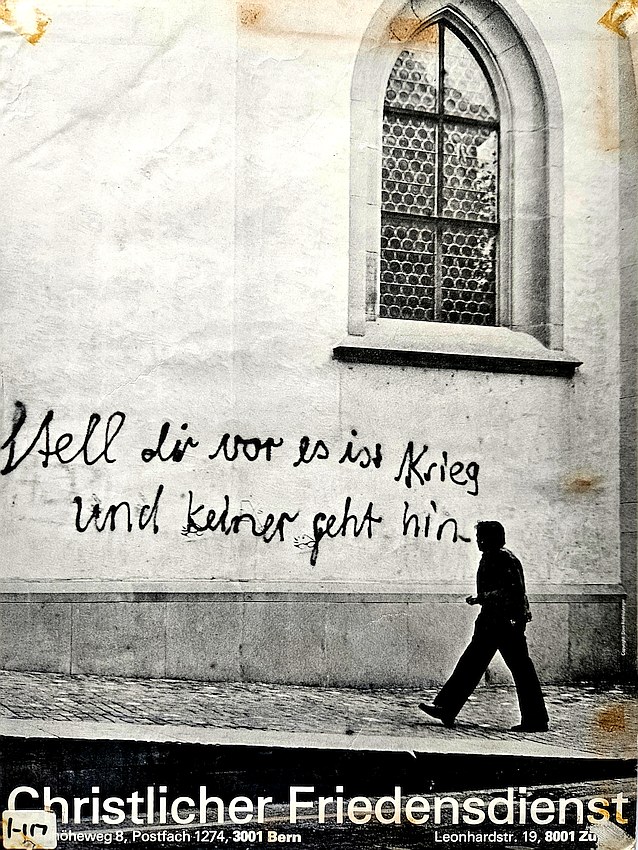 Stell dir vor es ist Krieg
und keiner geht hin
Christlicher Friedensdienst
höheweg 8, Postfach 1274, 3001 Bern
Leonhardstr. 19, 8001 Zü